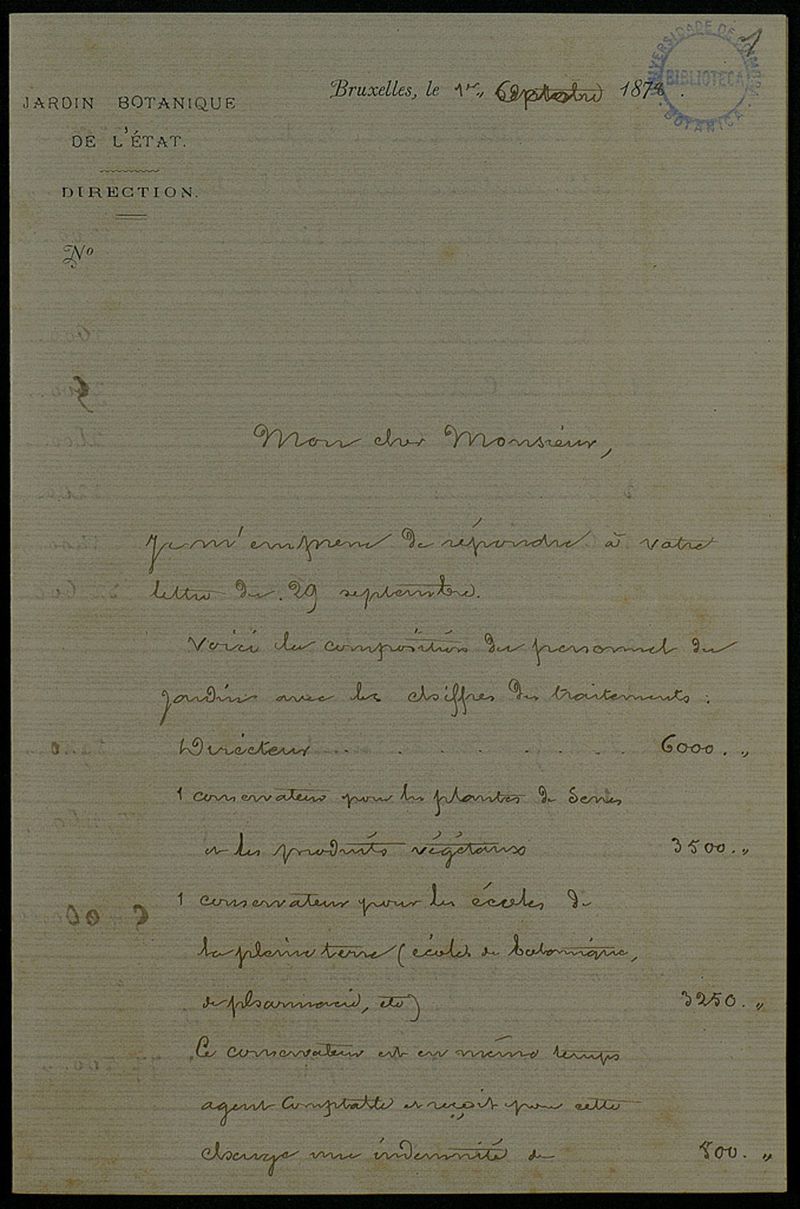 1
UNIVERSIDADE DE COIMBRA
BIBLIOTECA
BOTANICA
JARDIN BOTANIQUE
DE L'ÉTAT.
DIRECTION.
Nº
Bruxelles, le 1er 1878.
Mon cher Monsieur,
Je m'empresse de répondre à votre
lettre du 29 septembre.
Voici la composition du personnel du
jardin avec les chiffres des traitements :
Directeur . . . . . . . . . . 6000. "
1 conservateur pour les plantes de serres
et les produits végétaux 3500. "
1 conservateur pour les écoles de
la pleine terre (école de botanique,
de pharmacie, etc) 3250. "
Ce conservateur est en même temps
agent comptable et reçoit pour cette
charge une indemnité de 500. "